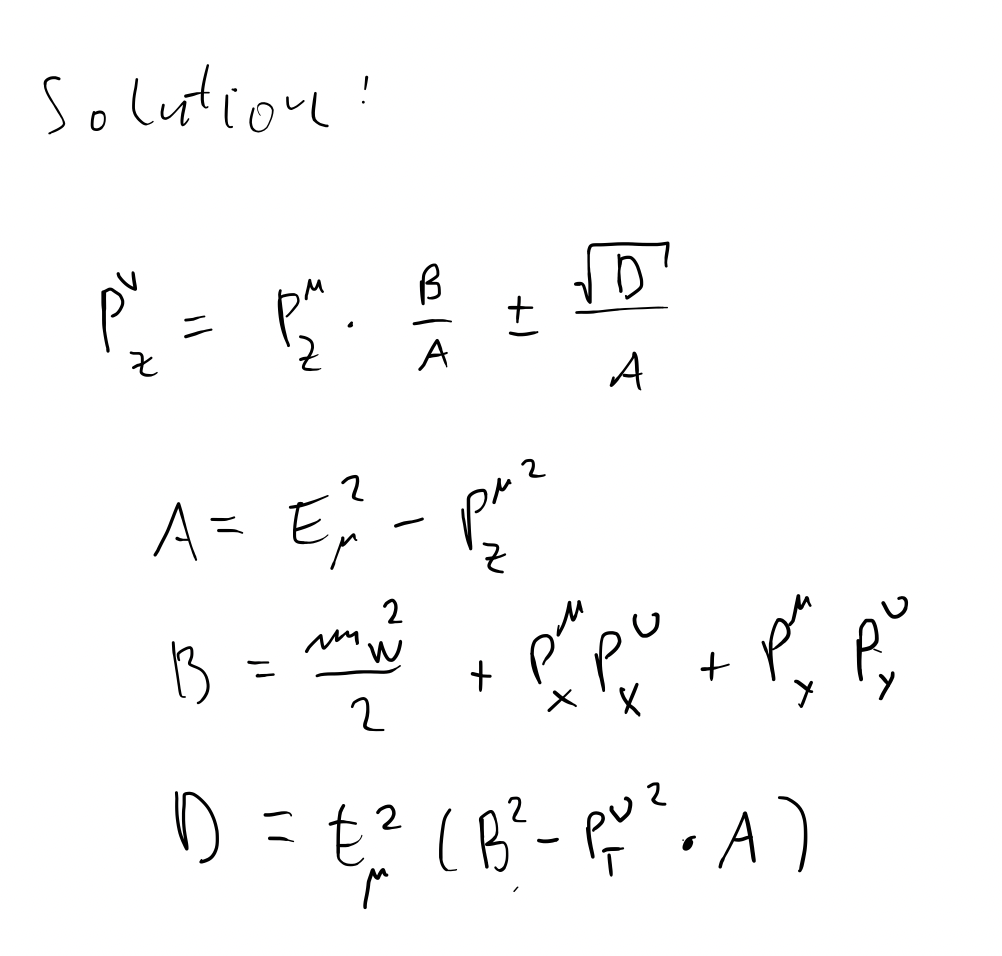 Solution:
P_z^ν = P_z^μ · B/A ± √D/A
A = E_μ^2 − P_z^μ^2
B = m_W^2/2 + P_x^μ P_x^ν + P_y^μ P_y^ν
D = E_μ^2 (B^2 − P_T^ν^2 · A)